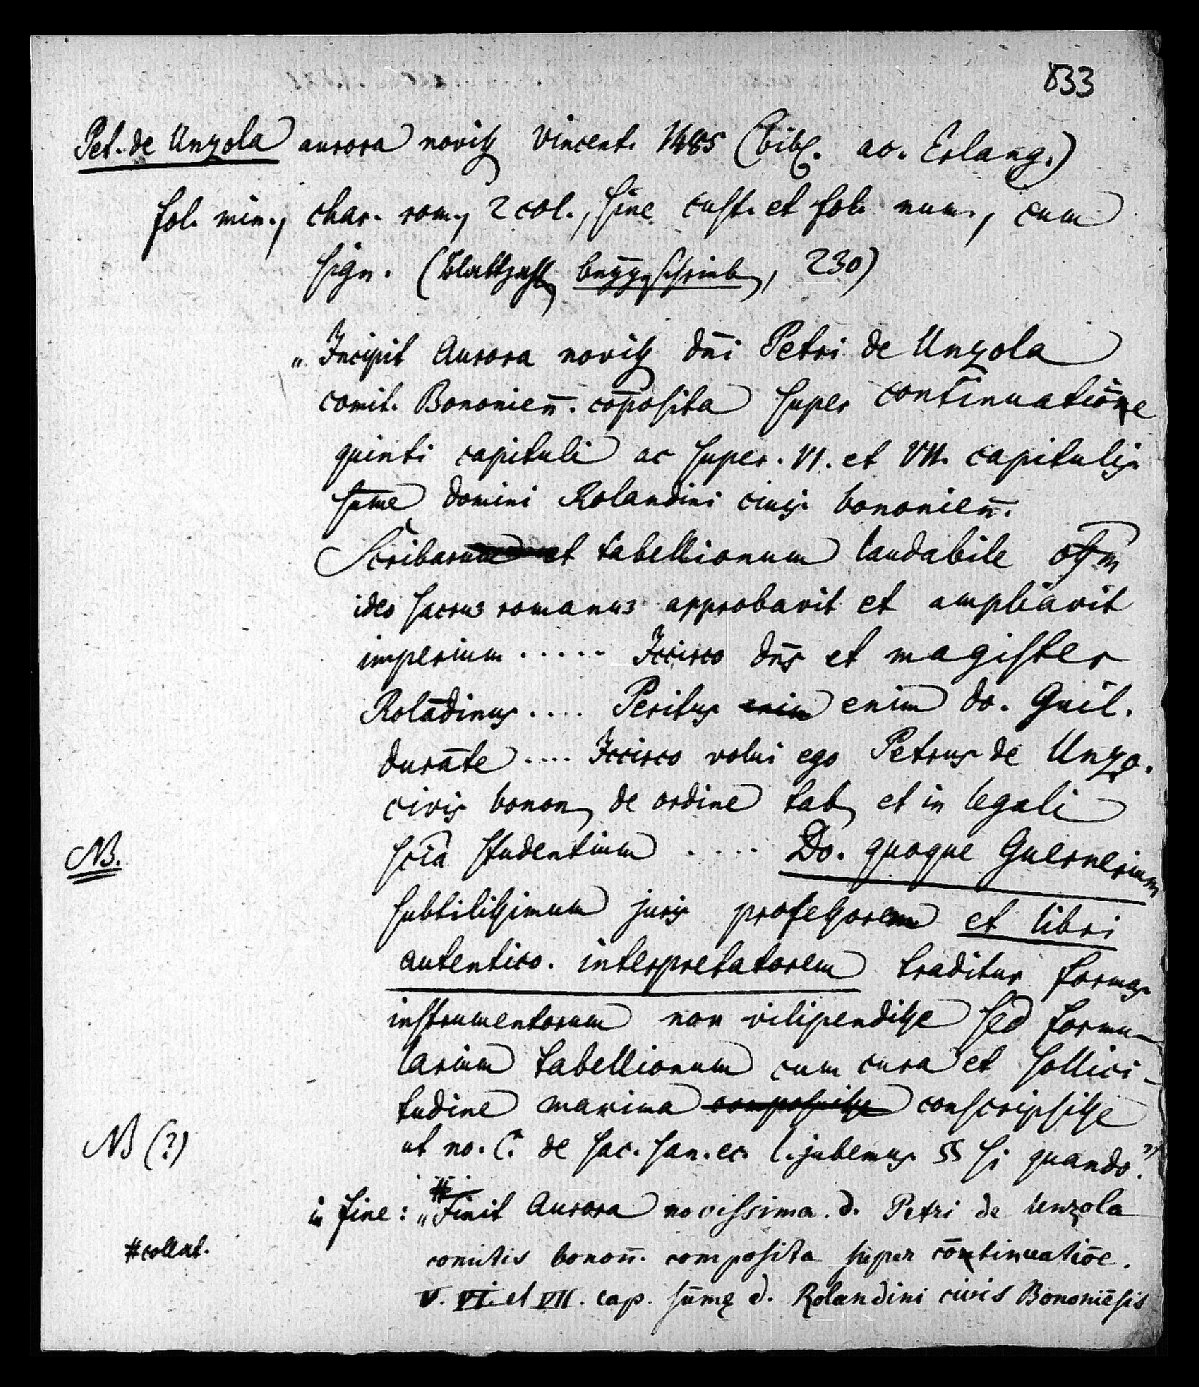 833
Pet. de Unzola aurora noviß Vincent. 1485 (bibl. ac. Erlang.)
fol. min., char. rom., 2 col., sine cust. et fol. num., cum
sign. (Blattzahl, 230)
„Incipit Aurora noviß dn̄i Petri de Unzola
comit. Bononien̄. co̅posita super contīnuatiōne
quinti capituli ac super. VI. et VII. capitulis
sum̄e domini Rolandini civis bononien̄.
Scribarum et tabellionum laudabile
ideo sacrus romanus approbavit et ampliavit
imperium ..... Iccirco dn̄s et magister
Rolādinus .... Peritus enim enim do. Guil.
durāte .... Iccirco volui ego Petrus de Unzo.
civis bonon, de ordine tab, et in legali
NB. sciā studentium .... Do. quoque Guernerium
subtilißimum juris profeßorem et libri
autentico. interpretatorem traditur formas
instrumentorum non vilipendiße sed formu-
larium tabellionum cum cura et sollici-
tudine maxima composuiße conscripsiße
NB (?) ut no. C. de sac. san. ec. l. jubemus §§ si quando."
in fine: „Finit Aurora novissima. d. Petri de Unzola
#collat. comitis bonon̄. composita super cōntinuatiōe.
V. VI et VII. cap. sūme d. Rolandini civis Bononiēsis